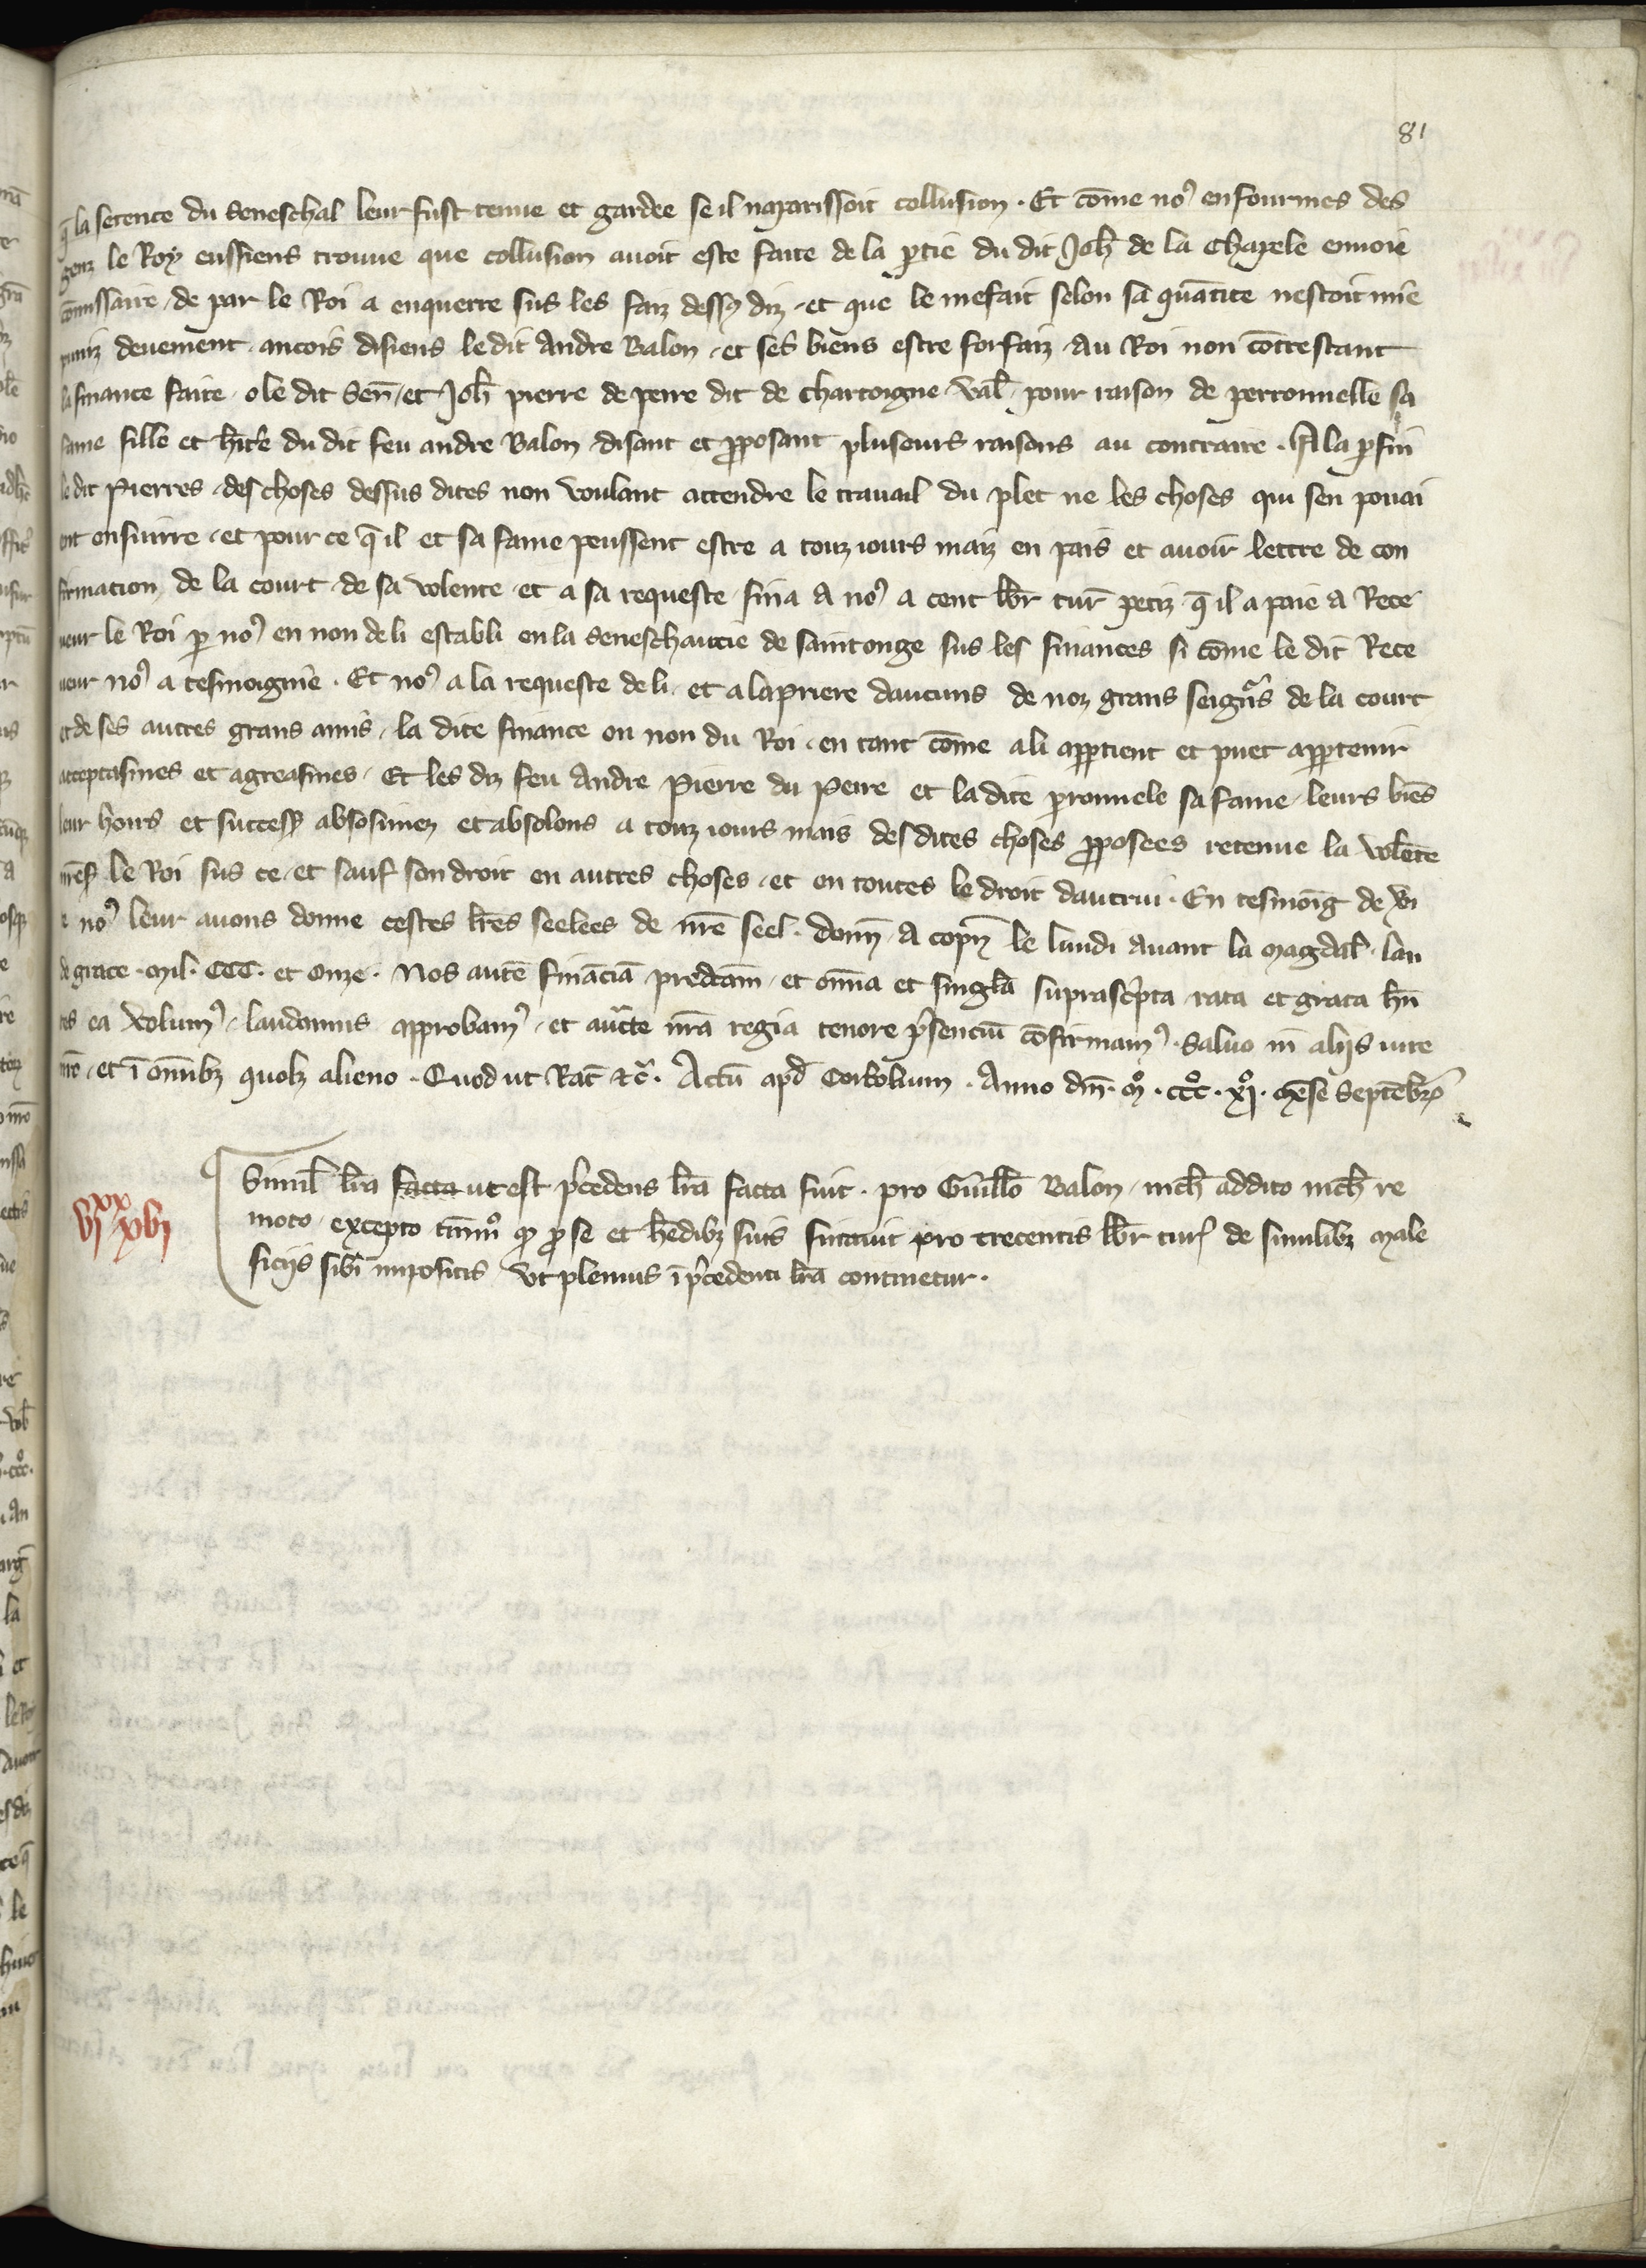 81
q̄ la setence du Seneschal leur fust tenue et gardee se il naparissoit collusion . Et cōme noꝰ enfourmes des
genz le Roy eussiens trouue que collusion auoit este faite de la ptie du dit Joh̄ de la Chapele enuoie
cōmissaire de par le Roi a enquerre sus les faiz dessꝰ diz . et que le mefait selon sa quātite nestoit mie
puniz deuement . ancois disiens le dit Andre Balon . et ses biens estre forfaiz au Roi non cōtrestant
la finance faite . o le dit Sen̄ . et Joh̄ pierre de peire dit de chartoigne val̄ . pour raison de perronnelle sa
fame fille et hīte du dit feu andre Balon disant et ꝓposant pluseurs raisons au contraire . A la ꝑfin
le dit Pierres . des choses dessus dites non voulant attendre le trauail du plet ne les choses qui sen pouai
ent ensuirre . et pour ce q̄ il et sa fame peussent estre a touz iours maiz en pais et auoir lettre de con
firmation de la court . de sa volente . et a sa requeste . fina a noꝰ a cent lb̄r tur̄ petiz . q̄ il a paie a Rece
ueur le Roi ꝑ noꝰ en non de li establi en la seneschaucie de saintonge sus les finances si cōme le dit Rece
ueur noꝰ a tesmoignie . Et noꝰ a la requeste de li . et a la priere daucuns de noz grans seign̄rs de la court
et de ses autres grans amis . la dite finance ou non du Roi . en tant cōme a li apꝑtient et puet apꝑtenir
acceptasmes et agreasmes . Et les diz feu Andre Pierre du Peire et la dite ꝑronnele sa fame . leurs biēs
leur hoirs et successꝰ absosimez et absolons a touz iours mais des dites choses ꝓposees retenue la volēte
nr̄e le Roi sus ce . et sauf son droit en autres choses . et en toutes le droit dautrui . En tesmoīg de
noꝰ leur auons donne cestes l̄res seelees de nr̄e seel . donn̄ A le lundi auant la magdal̄ . lan
de grace . Mil . CCC . et onze . Nos autē fināciā predcām . et om̄a et singl̄a suprasc̄pta rata et grata hn̄
tes ea volumꝰ . laudamus approbamꝰ . et auc̄te nr̄a regia tenore p̄senciū cōfirmamꝰ . Saluo in alijs iure
nr̄o . et ī om̄ibꝫ quolꝫ alieno . Quod ut Rat̄ &c̄ . Actū apd̄ Corbolium . Anno dn̄i . mͦ . cccͦ . xjͦ . Mēse septēbꝝ
vjxx xvj
Simil̄ l̄ra facta ut est p̄cedens l̄ra facta fuit . pro Guill̄o Balon . nich̄ addito nich̄ re
moto . excepto tn̄mͦ qꝫ ꝓ se et h̄edibꝫ suis finauit pro trecentis lb̄r tur̄ de similibꝫ male
ficijs sibi impositis vt plenius ī p̄cedenti l̄ra continetur .